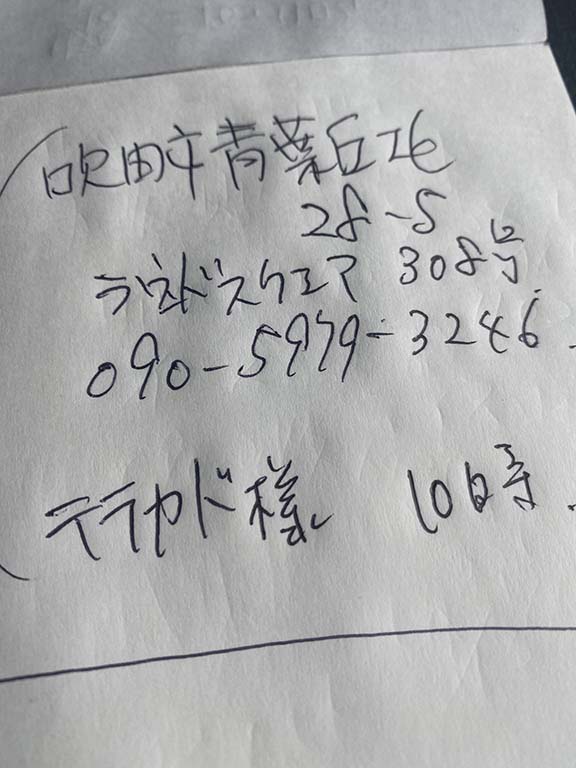 吹田市青葉丘北
28-5
ラウンドスクエア 308号
090-5979-3246
テラカド様 10時